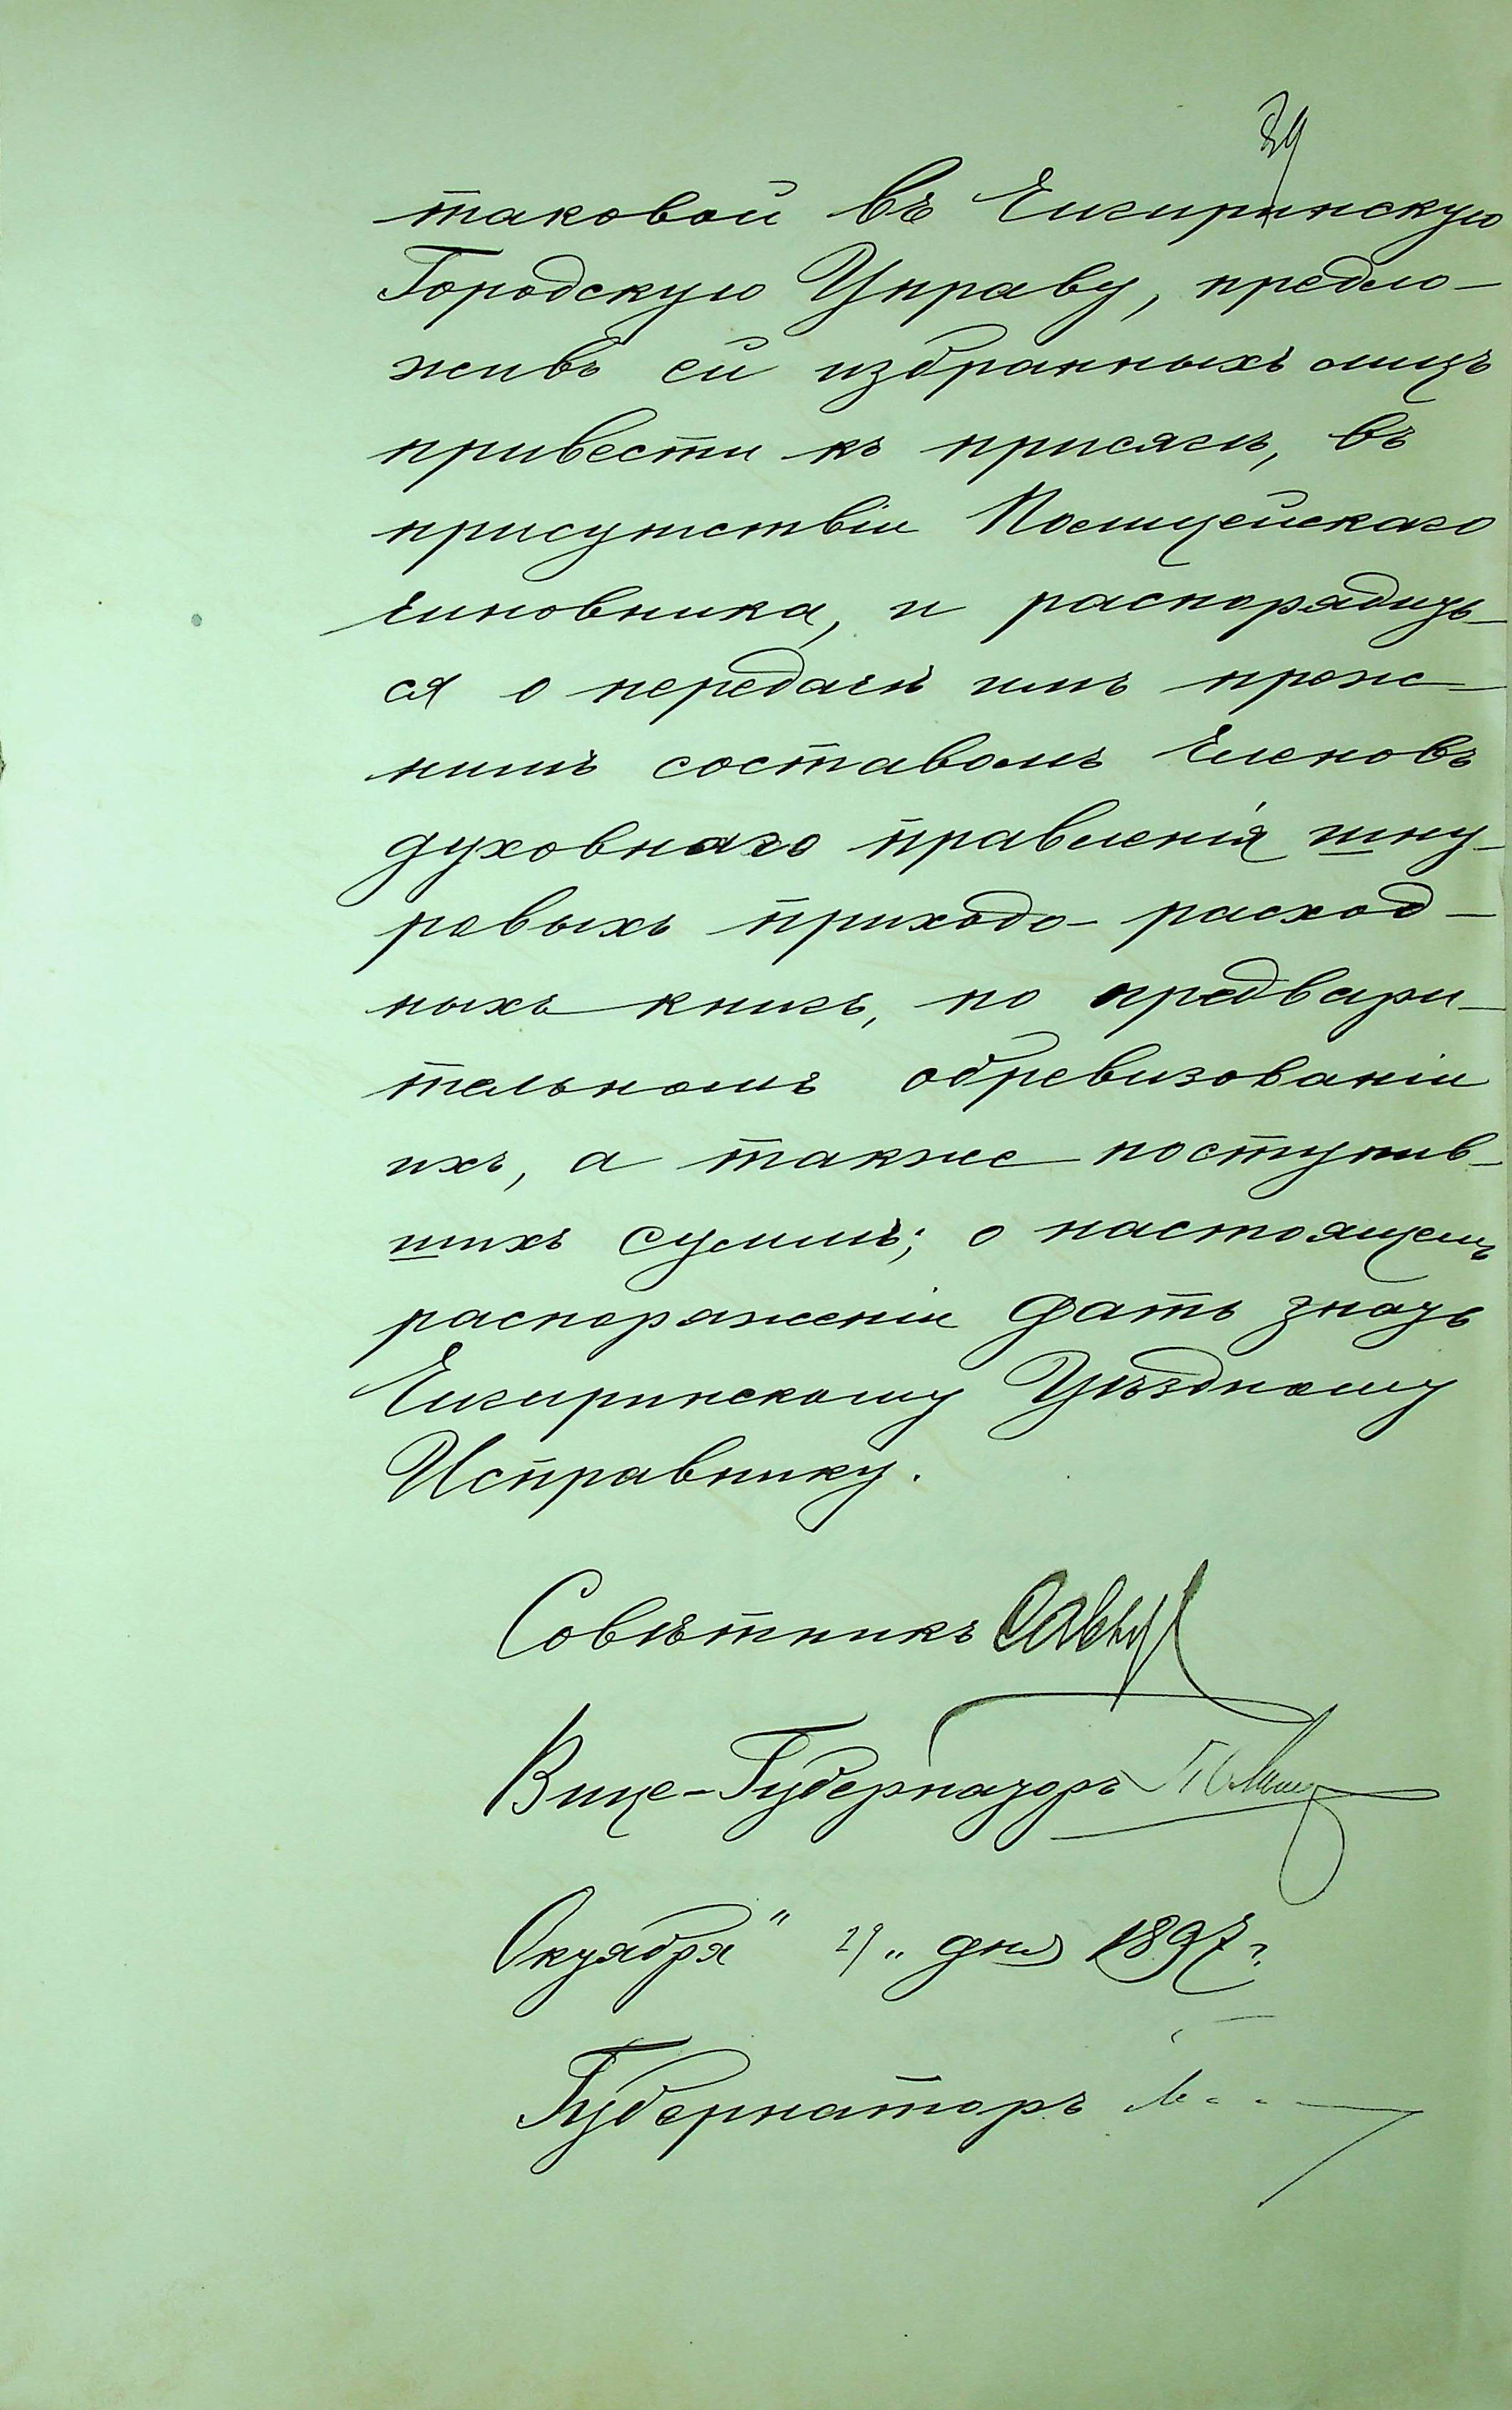 39
таковой въ Чигиринскую
Городскую Управу, предло-
живъ ей избранныхъ лицъ
привести къ присягѣ, въ
присутствіи Полицейскаго
Чиновника, и распорядить-
ся о передачѣ имъ преж-
нимъ составомъ членовъ
духовнаго правленія шну-
ровыхъ приходо-расход-
ныхъ книгъ, по предвари-
тельномъ обревизованіи
ихъ, а также поступив-
шихъ суммъ; о настоящемъ
распоряженіи дать знать
Чигиринскому Уѣздному
Исправнику.
Совѣтникъ
Вице-Губернаторъ
Октября " 29 " дня 1897 г.
Губернаторъ